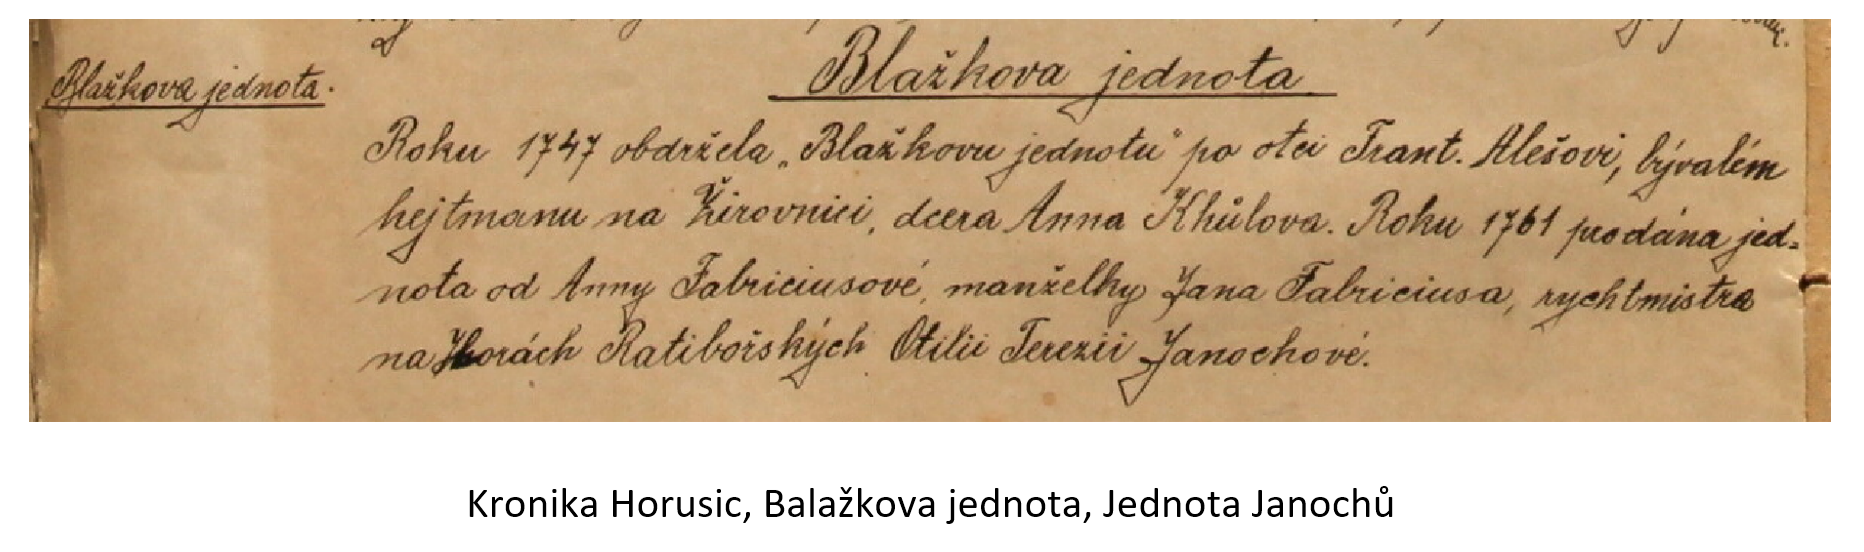 Blažkova jednota.
Blažkova jednota
Roku 1747 obdržela „Blažkovu jednotu" po otci Frant. Alešovi, bývalém
hejtmanu na Žirovnici, dcera Anna Khůlova. Roku 1761 prodána jed-
nota od Anny Fabriciusové, manželky Jana Fabriciusa, rychtmistra
na Horách Ratibořských Otilii Terezii Janochové.
Kronika Horusic, Balažkova jednota, Jednota Janochů